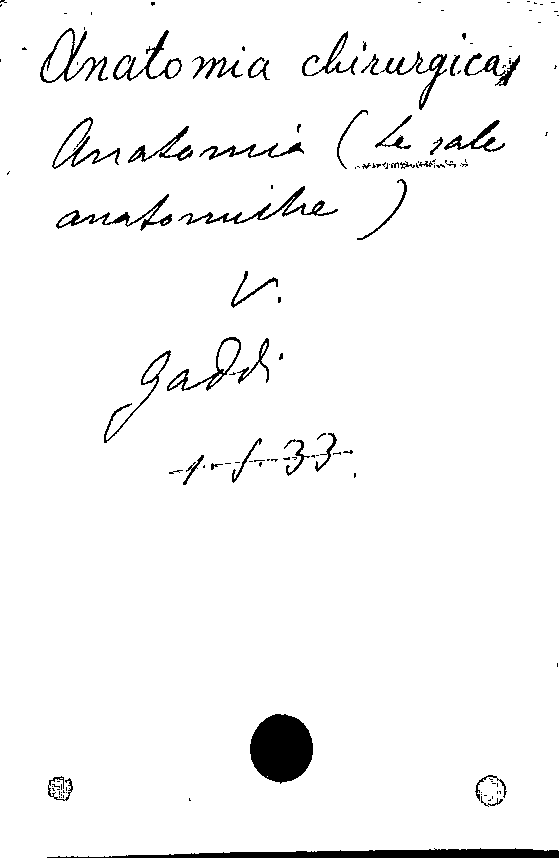 Anatomia chirurgica
Anatomia (Le sale
anatomiche)
V.
Gaddi
1. f. 33.